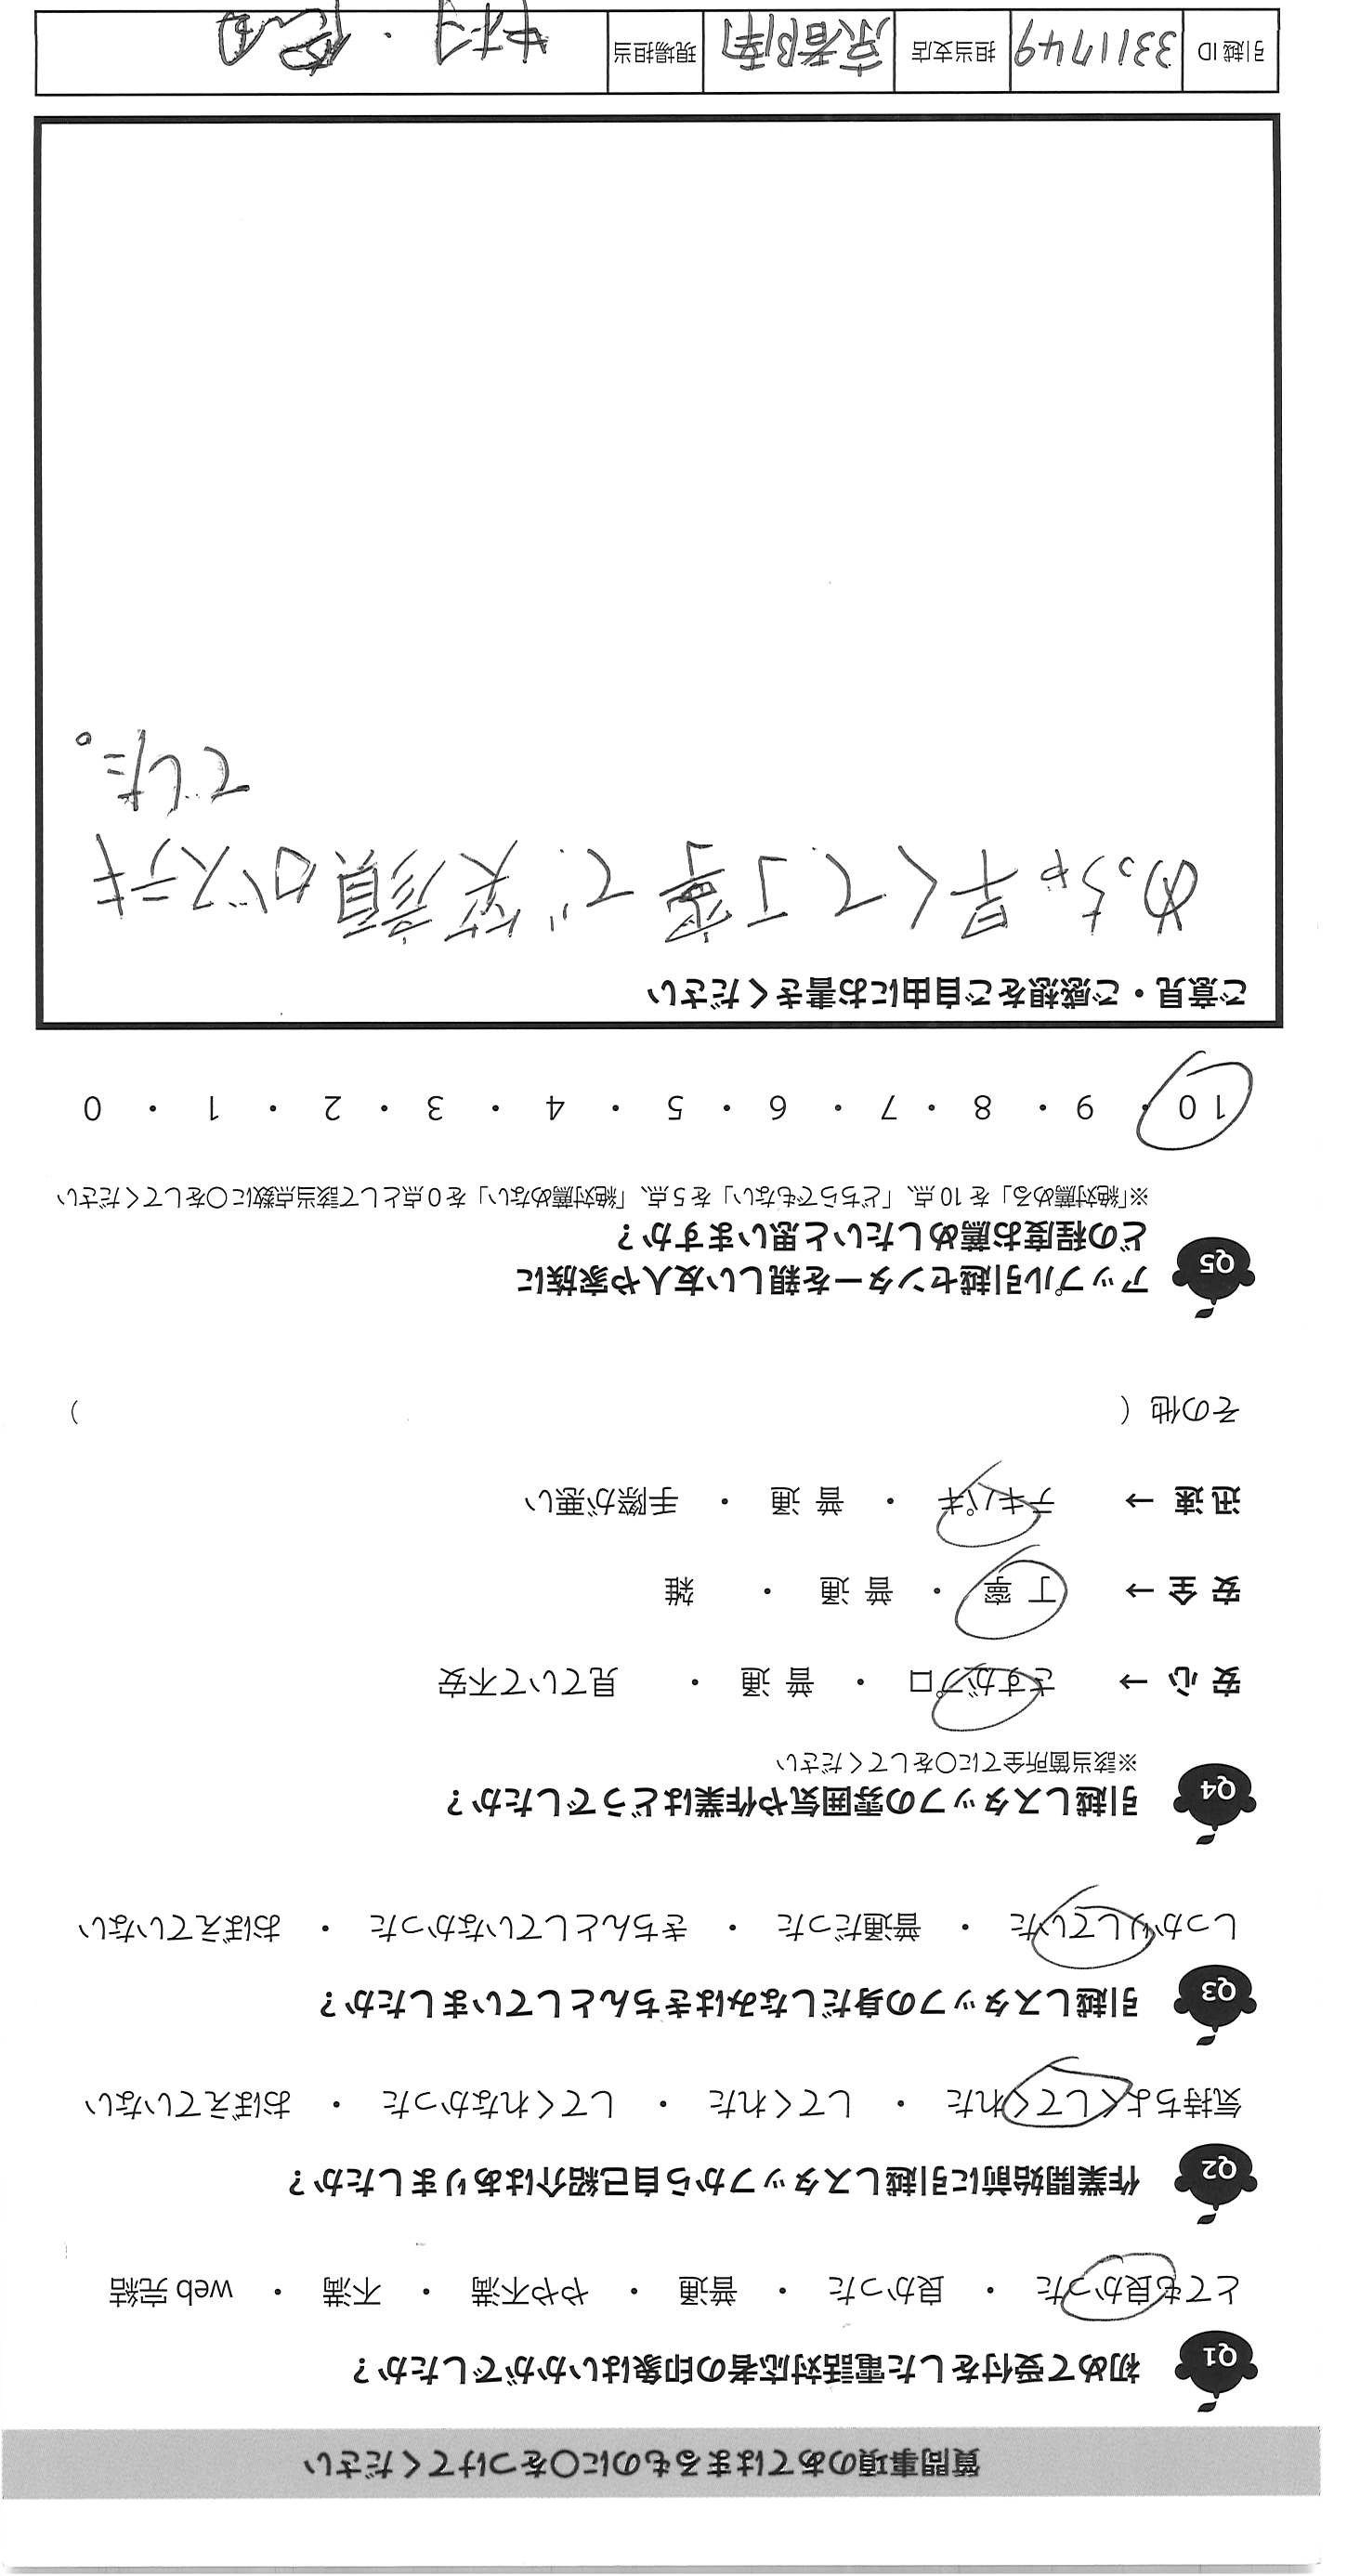 質問事項のあてはまるものに○をつけてください
Q1 初めて受付をした電話対応者の印象はいかがでしたか？
とても良かった ・ 良かった ・ 普通 ・ やや不満 ・ 不満 ・ web 完結
Q2 作業開始前に引越しスタッフから自己紹介はありましたか？
気持ちよくしてくれた ・ してくれた ・ してくれなかった ・ おぼえていない
Q3 引越しスタッフの身だしなみはきちんとしていましたか？
しっかりしていた ・ 普通だった ・ きちんとしていなかった ・ おぼえていない
Q4 引越しスタッフの雰囲気や作業はどうでしたか？
※該当箇所全てに○をしてください
安 心 → さすがプロ ・ 普 通 ・ 見ていて不安
安 全 → 丁 寧 ・ 普 通 ・ 雑
迅 速 → テキパキ ・ 普 通 ・ 手際が悪い
その他（ ）
Q5 アップル引越センターを親しい友人や家族に
どの程度お薦めしたいと思いますか？
※「絶対薦める」を 10 点、「どちらでもない」を 5 点、「絶対薦めない」を 0 点として該当点数に○をしてください
10 ・ 9 ・ 8 ・ 7 ・ 6 ・ 5 ・ 4 ・ 3 ・ 2 ・ 1 ・ 0
ご意見・ご感想をご自由にお書きください
めっちゃ早くて丁寧で、笑顔がステキ
でした。
引越 ID 3311749 担当支店 京都南 現場担当